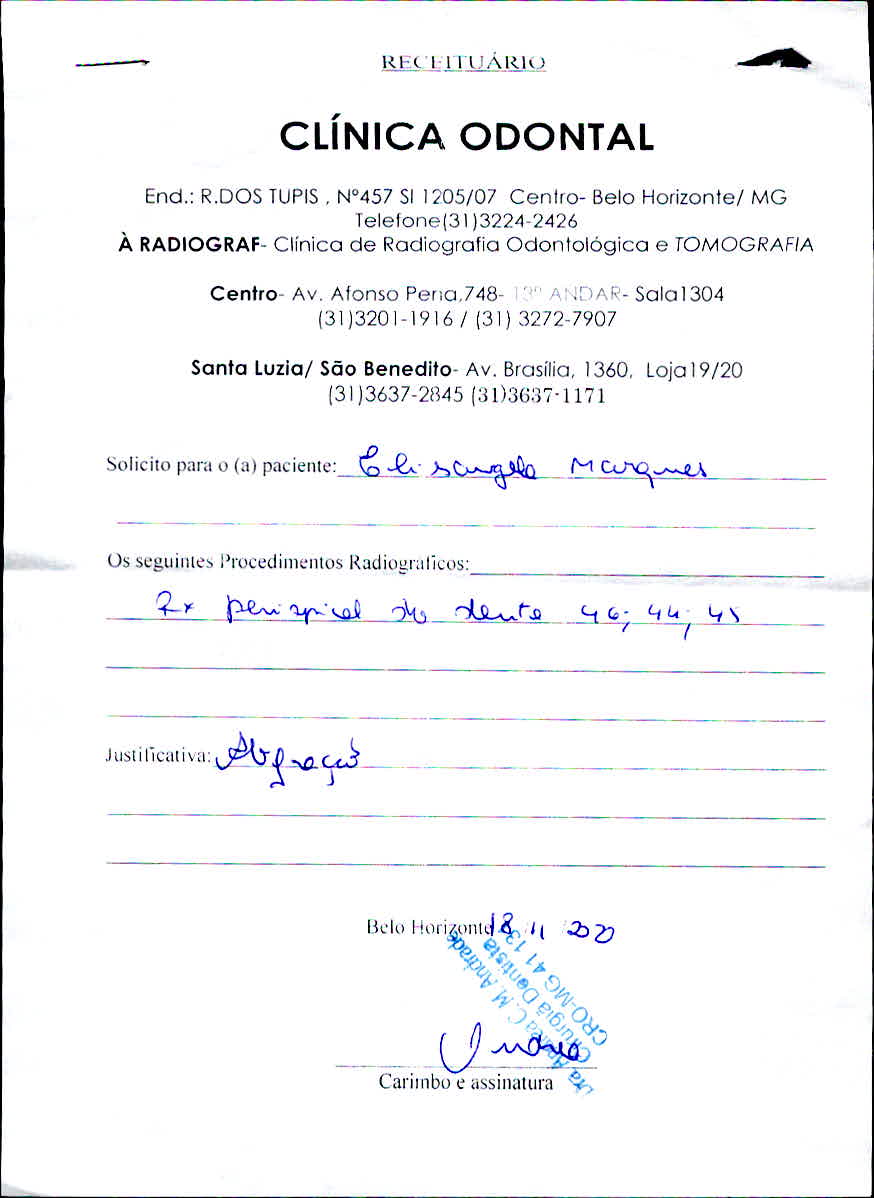 RECEITUÁRIO
CLÍNICA ODONTAL
End.: R.DOS TUPIS , Nº457 Sl 1205/07 Centro- Belo Horizonte/ MG
Telefone(31)3224-2426
À RADIOGRAF- Clínica de Radiografia Odontológica e TOMOGRAFIA
Centro- Av. Afonso Pena,748- 13º ANDAR- Sala1304
(31)3201-1916 / (31) 3272-7907
Santa Luzia/ São Benedito- Av. Brasília, 1360, Loja19/20
(31)3637-2845 (31)3637-1171
Solicito para o (a) paciente: Elisangela Marques
Os seguintes Procedimentos Radiograficos:
Rx periapical do dente 46; 44; 45
Justificativa: Abfração
Belo Horizonte 18 11 2020
Dra Andréa C. M. Andrade
Cirurgiã Dentista
CRO-MG 41113
Andrea
Carimbo e assinatura